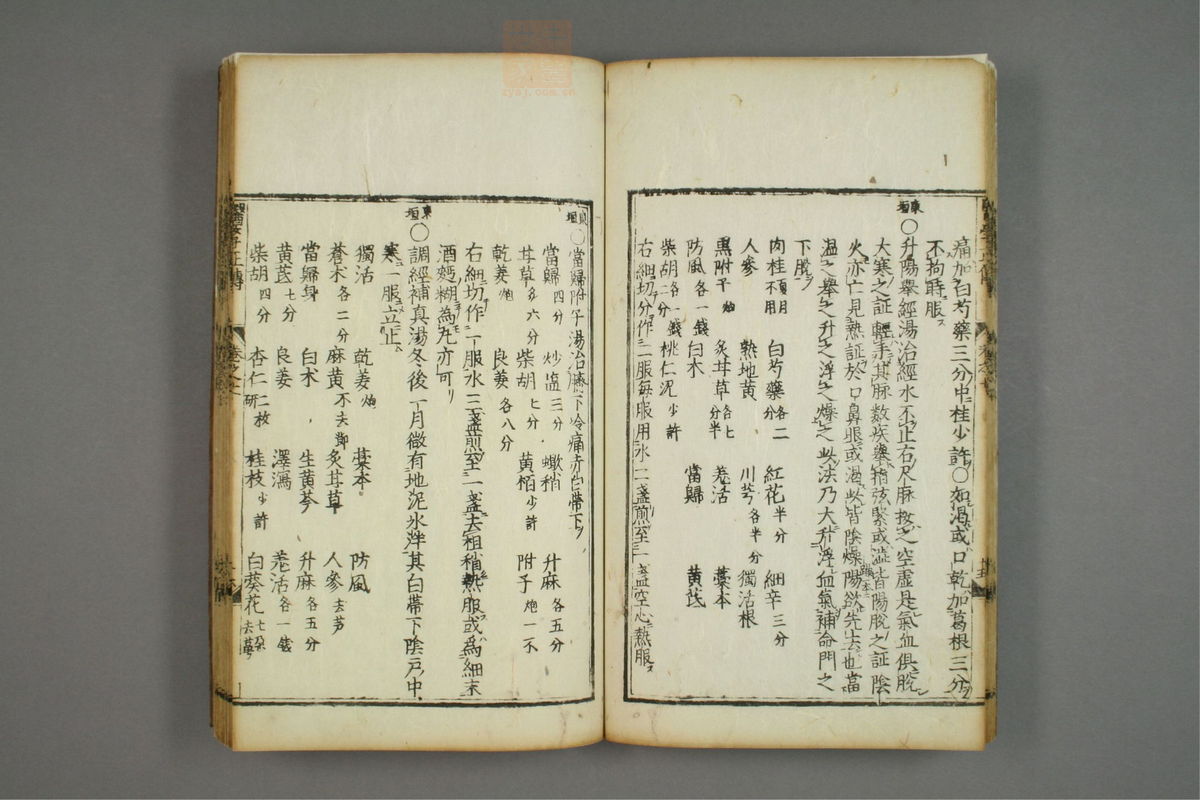 痛加白芍藥三分中桂少許○如渴或口乾加葛根三分
不拘時服
東垣
○升陽舉經湯治經水不止右尺脉按之空虛是氣血俱脫
大寒之証輕手其脉數疾舉指弦緊或濇皆陽脫之証陰
火亦亡見熱証於口鼻眼或渴此皆陰燥陽欲先去也當
温之舉之升之浮之燥之此法乃大升浮血氣補命門之
下脫
肉桂 白芍藥 紅花半分 細辛三分
人參 熟地黃 川芎各半分 獨活根
黑附子炮 炙甘草 羗活 藁本
防風各一錢 白朮 當歸 黃芪
柴胡二分 桃仁泥少許
右細切分作二服每服用水二盞煎至一盞空心熱服
東垣
○當歸附子湯治臍下冷痛赤白帶下
當歸四分 炒塩三分 蠍稍 升麻各五分
甘草炙六分 柴胡七分 黃栢少許 附子炮一不
乾姜炮 良姜各八分
右細切作一服水三盞煎至一盞去柤稍熱服或爲細末
酒麪糊為丸亦可
東垣
○調經補真湯冬後一月微有地泥水泮其白帶下陰戸中
寒一服立止
獨活 乾姜炮 藁本 防風
蒼朮各二分 麻黃不去節 炙甘草 人參去芦
當歸身 白朮 生黃芩 升麻各五分
黃芪七分 良姜 澤瀉 羗活各一錢
柴胡四分 杏仁二枚研 桂枝少許 白葵花七朶去萼